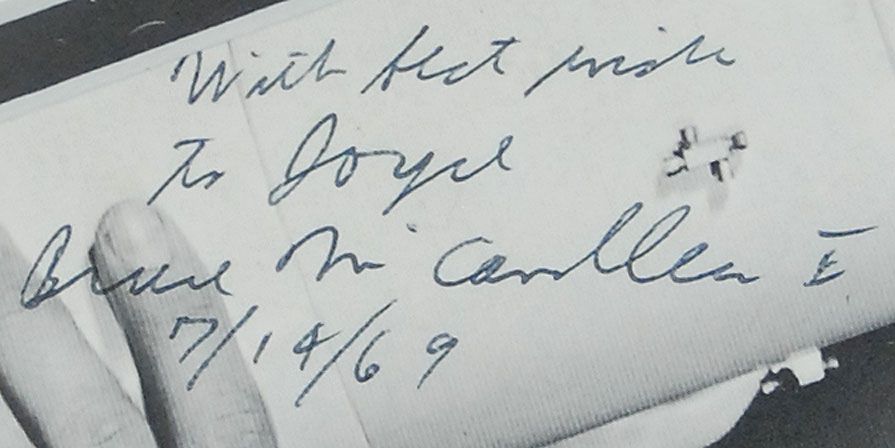 With best wishes
to Joyce
Bruce McCandless II
7/14/69